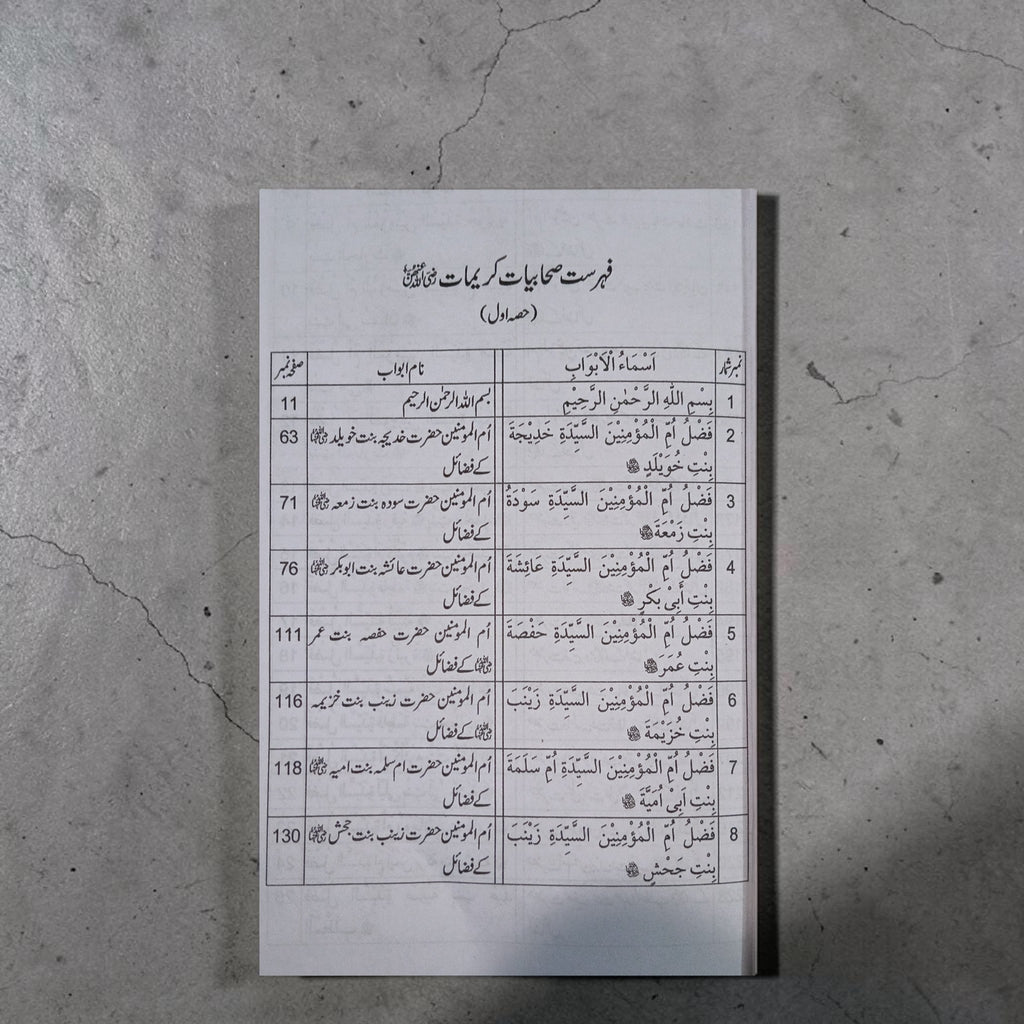 فہرست صحابیات کریمات رضی اللہ عنھن
(حصہ اول)
نمبر شمار اَسْمَاءُ الْاَبْوَابِ نام ابواب صفحہ نمبر
1 بِسْمِ اللّٰهِ الرَّحْمٰنِ الرَّحِيْمِ بسم اللہ الرحمٰن الرحیم 11
2 فَضْلُ اُمِّ الْمُؤْمِنِيْنَ السَّيِّدَةِ خَدِيْجَةَ اُم المومنین حضرت خدیجہ بنت خویلد رضی اللہ عنہا 63
بِنْتِ خُوَيْلَدٍ کے فضائل
3 فَضْلُ اُمِّ الْمُؤْمِنِيْنَ السَّيِّدَةِ سَوْدَةُ اُم المومنین حضرت سودہ بنت زمعہ رضی اللہ عنہا 71
بِنْتِ زَمْعَةَ کے فضائل
4 فَضْلُ اُمِّ الْمُؤْمِنِيْنَ السَّيِّدَةِ عَائِشَةَ اُم المومنین حضرت عائشہ بنت ابوبکر رضی اللہ عنہا 76
بِنْتِ أَبِيْ بَكْرٍ کے فضائل
5 فَضْلُ اُمِّ الْمُؤْمِنِيْنَ السَّيِّدَةِ حَفْصَةَ اُم المومنین حضرت حفصہ بنت عمر 111
بِنْتِ عُمَرَ رضی اللہ عنہا کے فضائل
6 فَضْلُ اُمِّ الْمُؤْمِنِيْنَ السَّيِّدَةِ زَيْنَبَ اُم المومنین حضرت زینب بنت خزیمہ 116
بِنْتِ خُزَيْمَةَ رضی اللہ عنہا کے فضائل
7 فَضْلُ اُمِّ الْمُؤْمِنِيْنَ السَّيِّدَةِ اُمِّ سَلَمَةَ اُم المومنین حضرت ام سلمہ بنت امیہ رضی اللہ عنہا 118
بِنْتِ اَبِيْ اُمَيَّةَ کے فضائل
8 فَضْلُ اُمِّ الْمُؤْمِنِيْنَ السَّيِّدَةِ زَيْنَبَ اُم المومنین حضرت زینب بنت جحش رضی اللہ عنہا 130
بِنْتِ جَحْشٍ کے فضائل